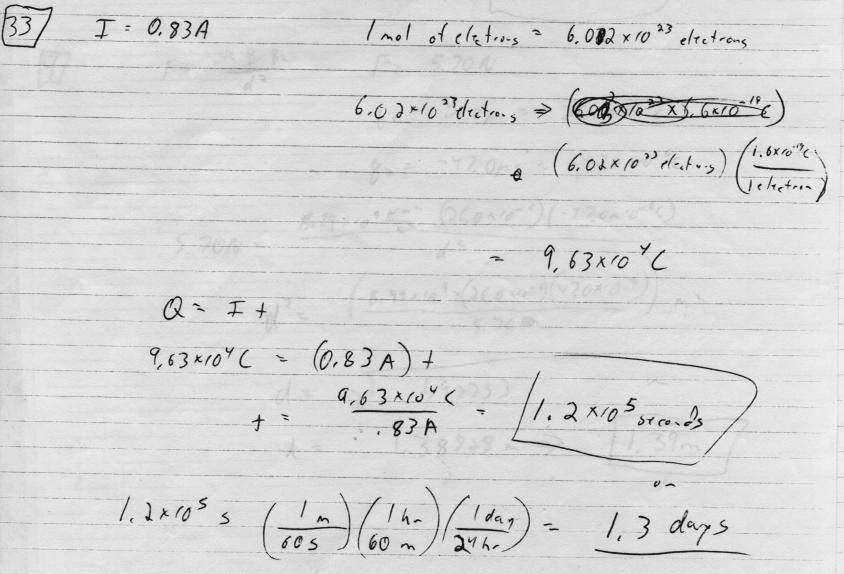 33 I = 0.83A 1 mol of electrons = 6.02 x 10^23 electrons
6.02 x 10^23 electrons ⇒ (6.02 x 10^23 x 1.6 x 10^-19 C)
(6.02 x 10^23 electrons) (1.6 x 10^-19 C / 1 electron)
= 9.63 x 10^4 C
Q = I t
9.63 x 10^4 C = (0.83 A) t
t = 9.63 x 10^4 C / .83 A = 1.2 x 10^5 seconds
or
1.2 x 10^5 s (1 m / 60 s) (1 hr / 60 m) (1 day / 24 hr) = 1.3 days